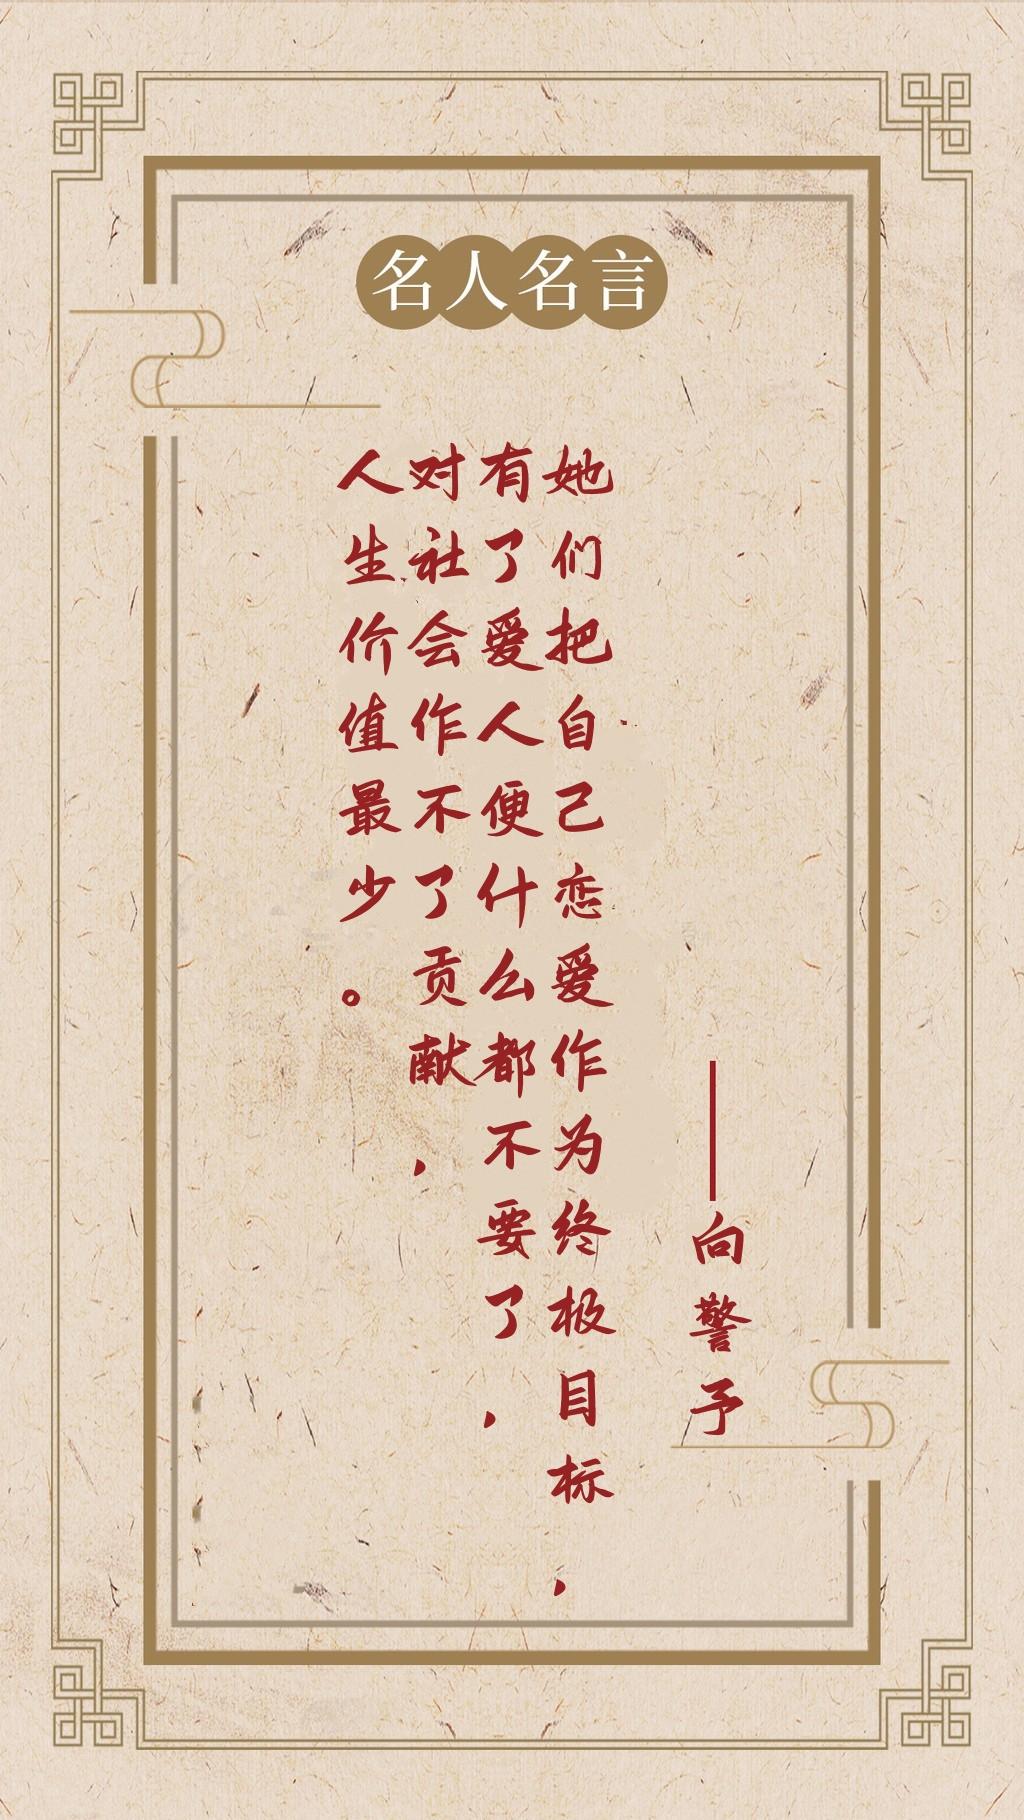 名人名言
她们把自己恋爱作为终极目标，
有了爱人便什么都不要了，
对社会作不了贡献，
人生价值最少。
——向警予